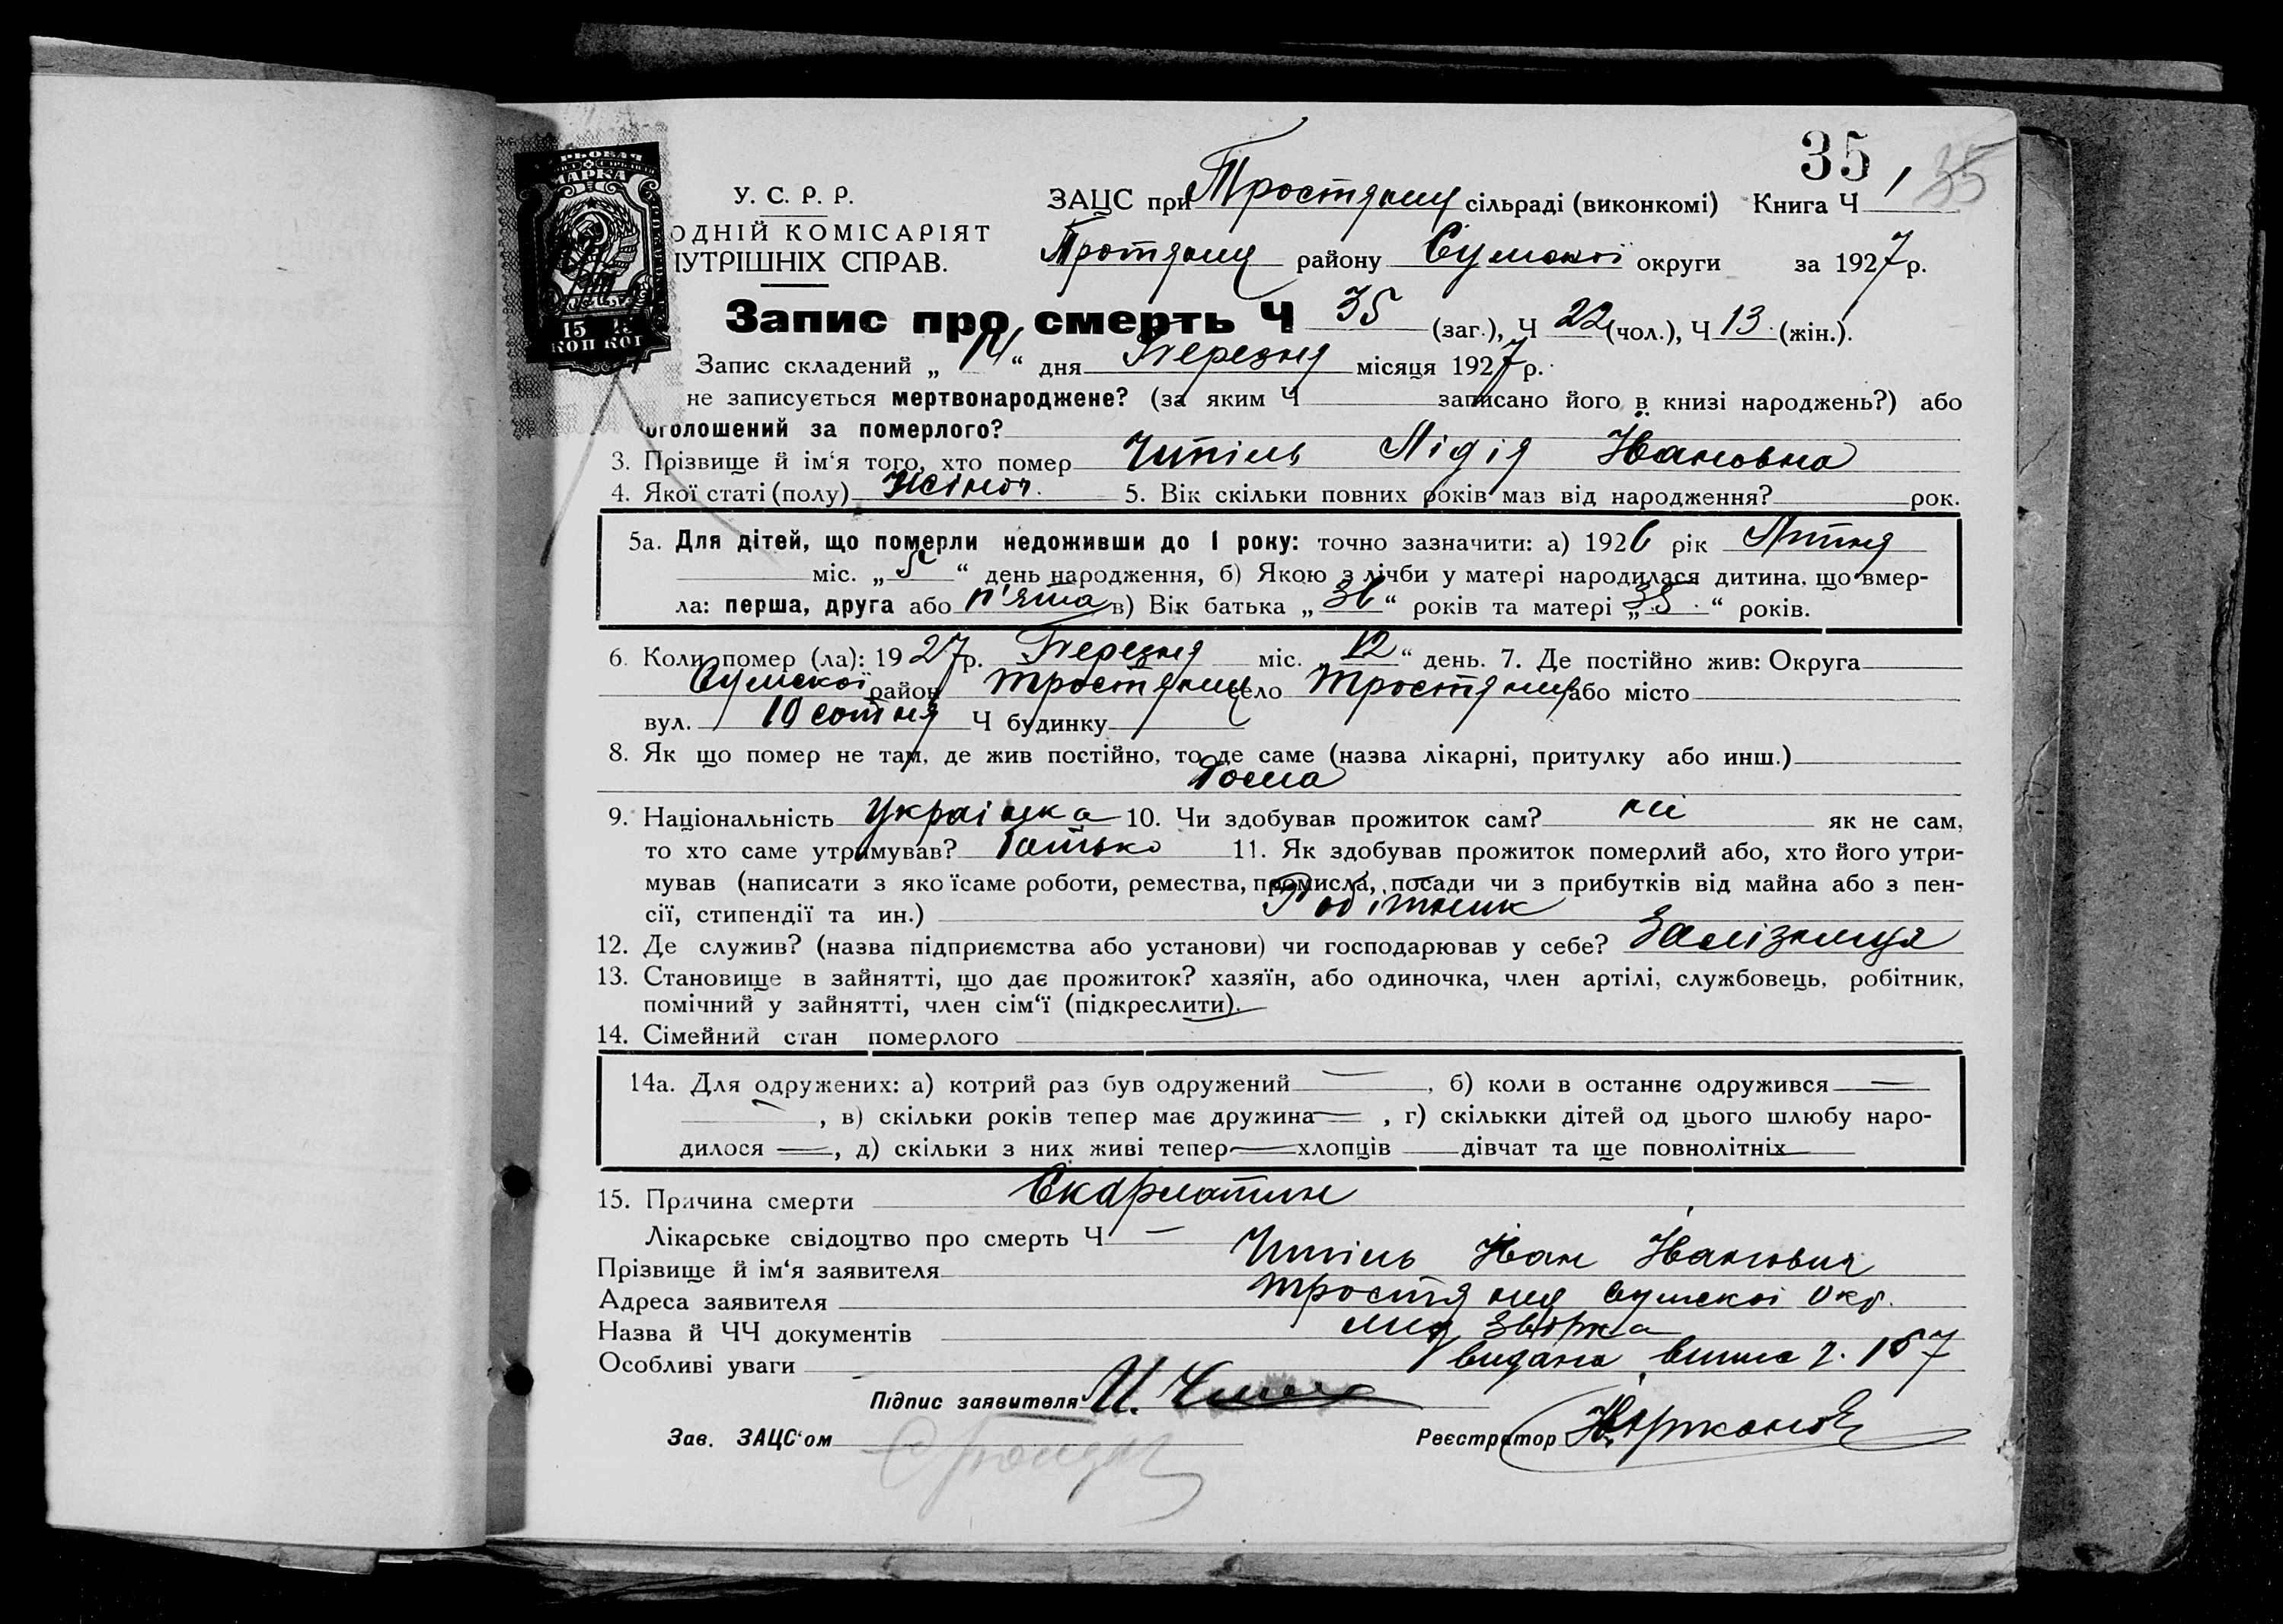 35
35
РЬОВАЯ
МАРКА
15 15
КОП КОП
У. С. Р. Р.
ОДНІЙ КОМІСАРІЯТ
НУТРІШНІХ СПРАВ.
ЗАЦС при Тростянец сільраді (виконкомі) Книга Ч 1
Тростянец району Сумської округи за 1927 р.
Запис про смерть Ч 35 (заг.), Ч 22 (чол.), Ч 13 (жін.).
Запис складений „ 14 “ дня Березня місяця 1927 р.
не записується мертвонароджене? (за яким Ч записано його в книзі народжень?) або
оголошений за померлого?
3. Прізвище й ім‘я того, хто помер Лідія Івановна
4. Якої статі (полу) Жіноч. 5. Вік скільки повних років мав від народження? рок.
5а. Для дітей, що померли недоживши до 1 року: точно зазначити: а) 1926 рік Липня
міс. „ 5 “ день народження, б) Якою з лічби у матері народилася дитина, що вмер-
ла: перша, друга або п'ята в) Вік батька „ 36 “ років та матері „ 35 “ років.
6. Коли помер (ла): 1927 р. Березня міс. „ 12 “ день. 7. Де постійно жив: Округа
Сумської район Тростянец село Тростянец або місто
вул. 10 сотня Ч будинку
8. Як що помер не там, де жив постійно, то де саме (назва лікарні, притулку або инш.)
Дома
9. Національність Українка 10. Чи здобував прожиток сам? ні як не сам,
то хто саме утримував? батько 11. Як здобував прожиток померлий або, хто його утри-
мував (написати з якоїсаме роботи, ремества, промисла, посади чи з прибутків від майна або з пен-
сії, стипендії та ин.) Робітник
12. Де служив? (назва підприємства або установи) чи господарював у себе? Залізниця
13. Становище в зайнятті, що дає прожиток? хазяїн, або одиночка, член артілі, службовець, робітник,
помічний у зайнятті, член сім‘ї (підкреслити).
14. Сімейний стан померлого
14а. Для одружених: а) котрий раз був одружений —, б) коли в останнє одружився —
—, в) скільки років тепер має дружина —, г) скількки дітей од цього шлюбу наро-
дилося —, д) скільки з них живі тепер — хлопців — дівчат та ще повнолітніх —
15. Причина смерти Скарлатин
Лікарське свідоцтво про смерть Ч —
Прізвище й ім‘я заявителя Іван Іванович
Адреса заявителя Тростянец Сумскоі Окр.
Назва й ЧЧ документів
Особливі уваги видана
Підпис заявителя
Зав. ЗАЦС‘ом
Реєстратор